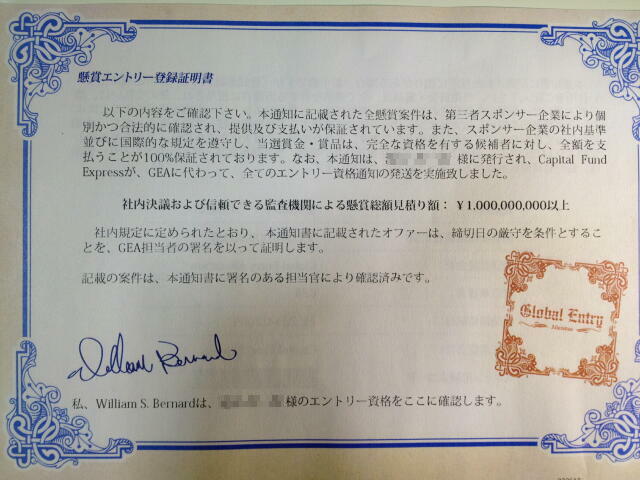 懸賞エントリー登録証明書
以下の内容をご確認下さい。本通知に記載された全懸賞案件は、第三者スポンサー企業により個
別かつ合法的に確認され、提供及び支払いが保証されています。また、スポンサー企業の社内基準
並びに国際的な規定を遵守し、当選賞金・賞品は、完全な資格を有する候補者に対し、全額を支
払うことが100%保証されております。なお、本通知は、 様に発行され、Capital Fund
Expressが、GEAに代わって、全てのエントリー資格通知の発送を実施致しました。
社内決議および信頼できる監査機関による懸賞総額見積り額：￥1,000,000,000以上
社内規定に定められたとおり、本通知書に記載されたオファーは、締切日の厳守を条件とするこ
とを、GEA担当者の署名を以って証明します。
記載の案件は、本通知書に署名のある担当官により確認済みです。
Global Entry
William Bernard
私、William S. Bernardは、 様のエントリー資格をここに確認します。